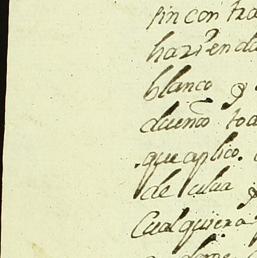 sin contra
hazienda
blanco y
dueño tod
que aplico.
de
Cualquiera